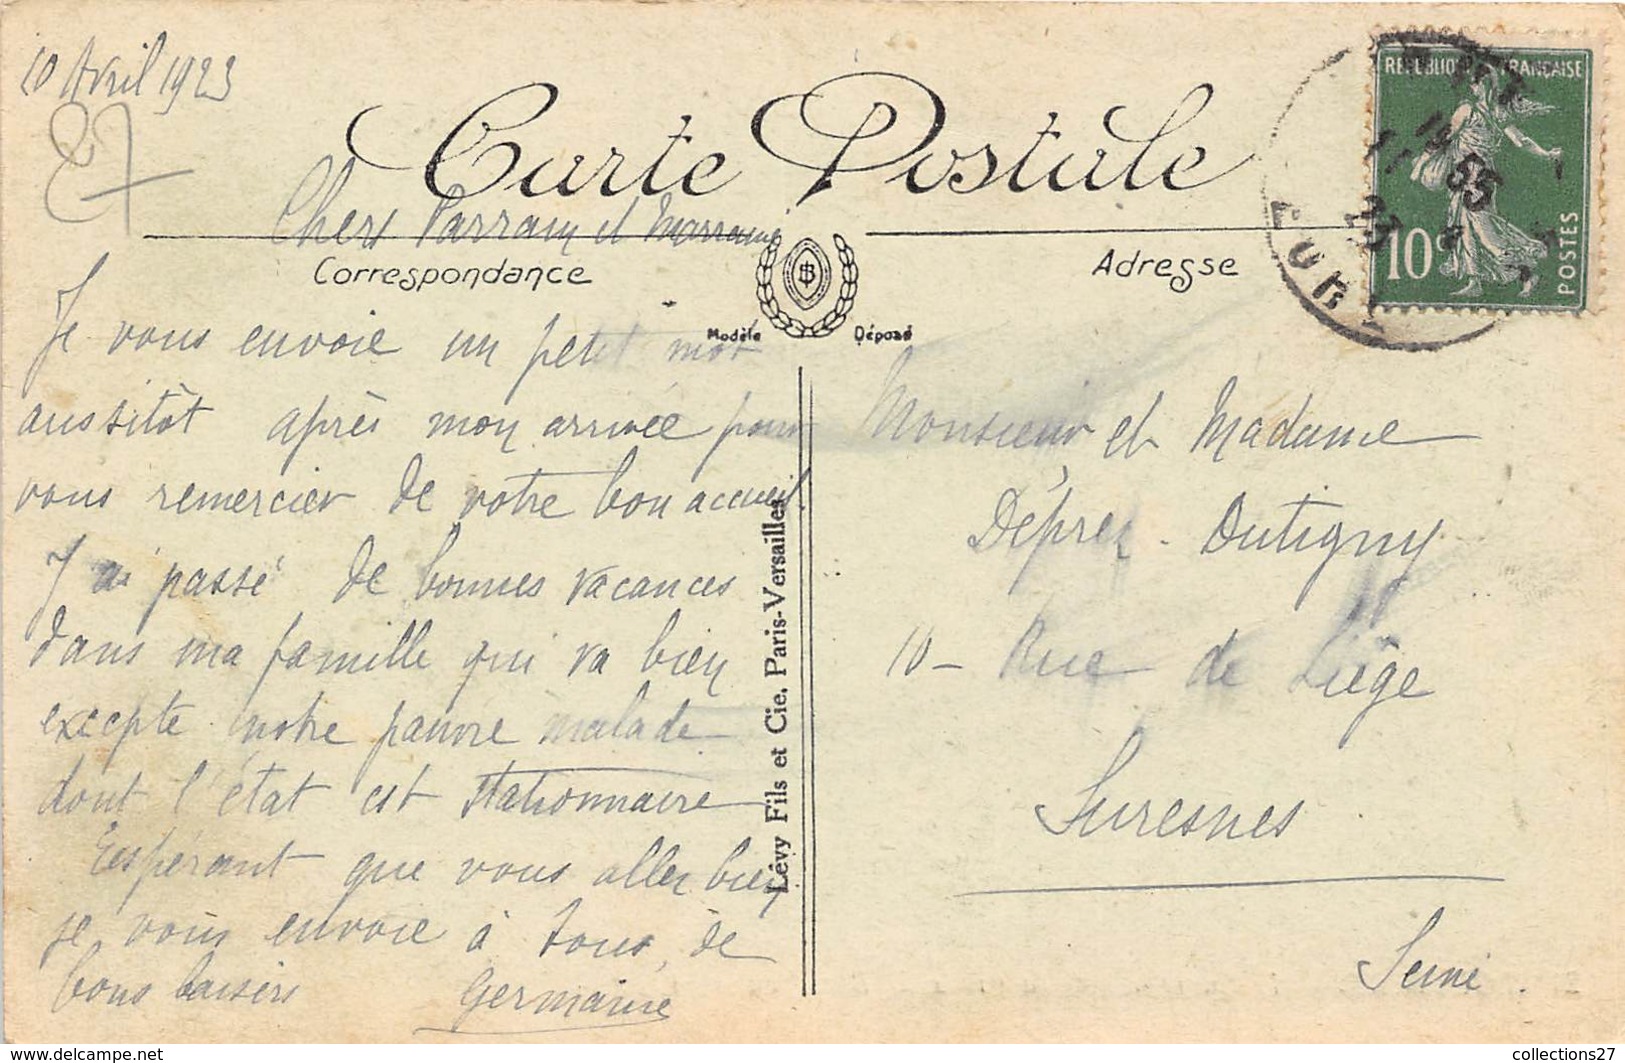 10 Avril 1923
27
Carte Postale
Chers Parrain et Marraine
Correspondance
Je vous envoie un petit mot
aussitôt après mon arrivée pour
vous remercier de votre bon accueil.
J'ai passé de bonnes vacances
dans ma famille qui va bien
excepte notre pauvre malade
dont l'état est stationnaire
Espérant que vous allez bien
je vous envoie à tous, de
bons baisers Germaine
Modèle Déposé
Lévy Fils et Cie. Paris-Versailles
Adresse
REPUBLIQUE FRANÇAISE
10c
POSTES
19 55
11 4
23
EURE
Monsieur et Madame
Déprez - Dutigny
10 - Rue de Liège
Suresnes
Seine
collections27